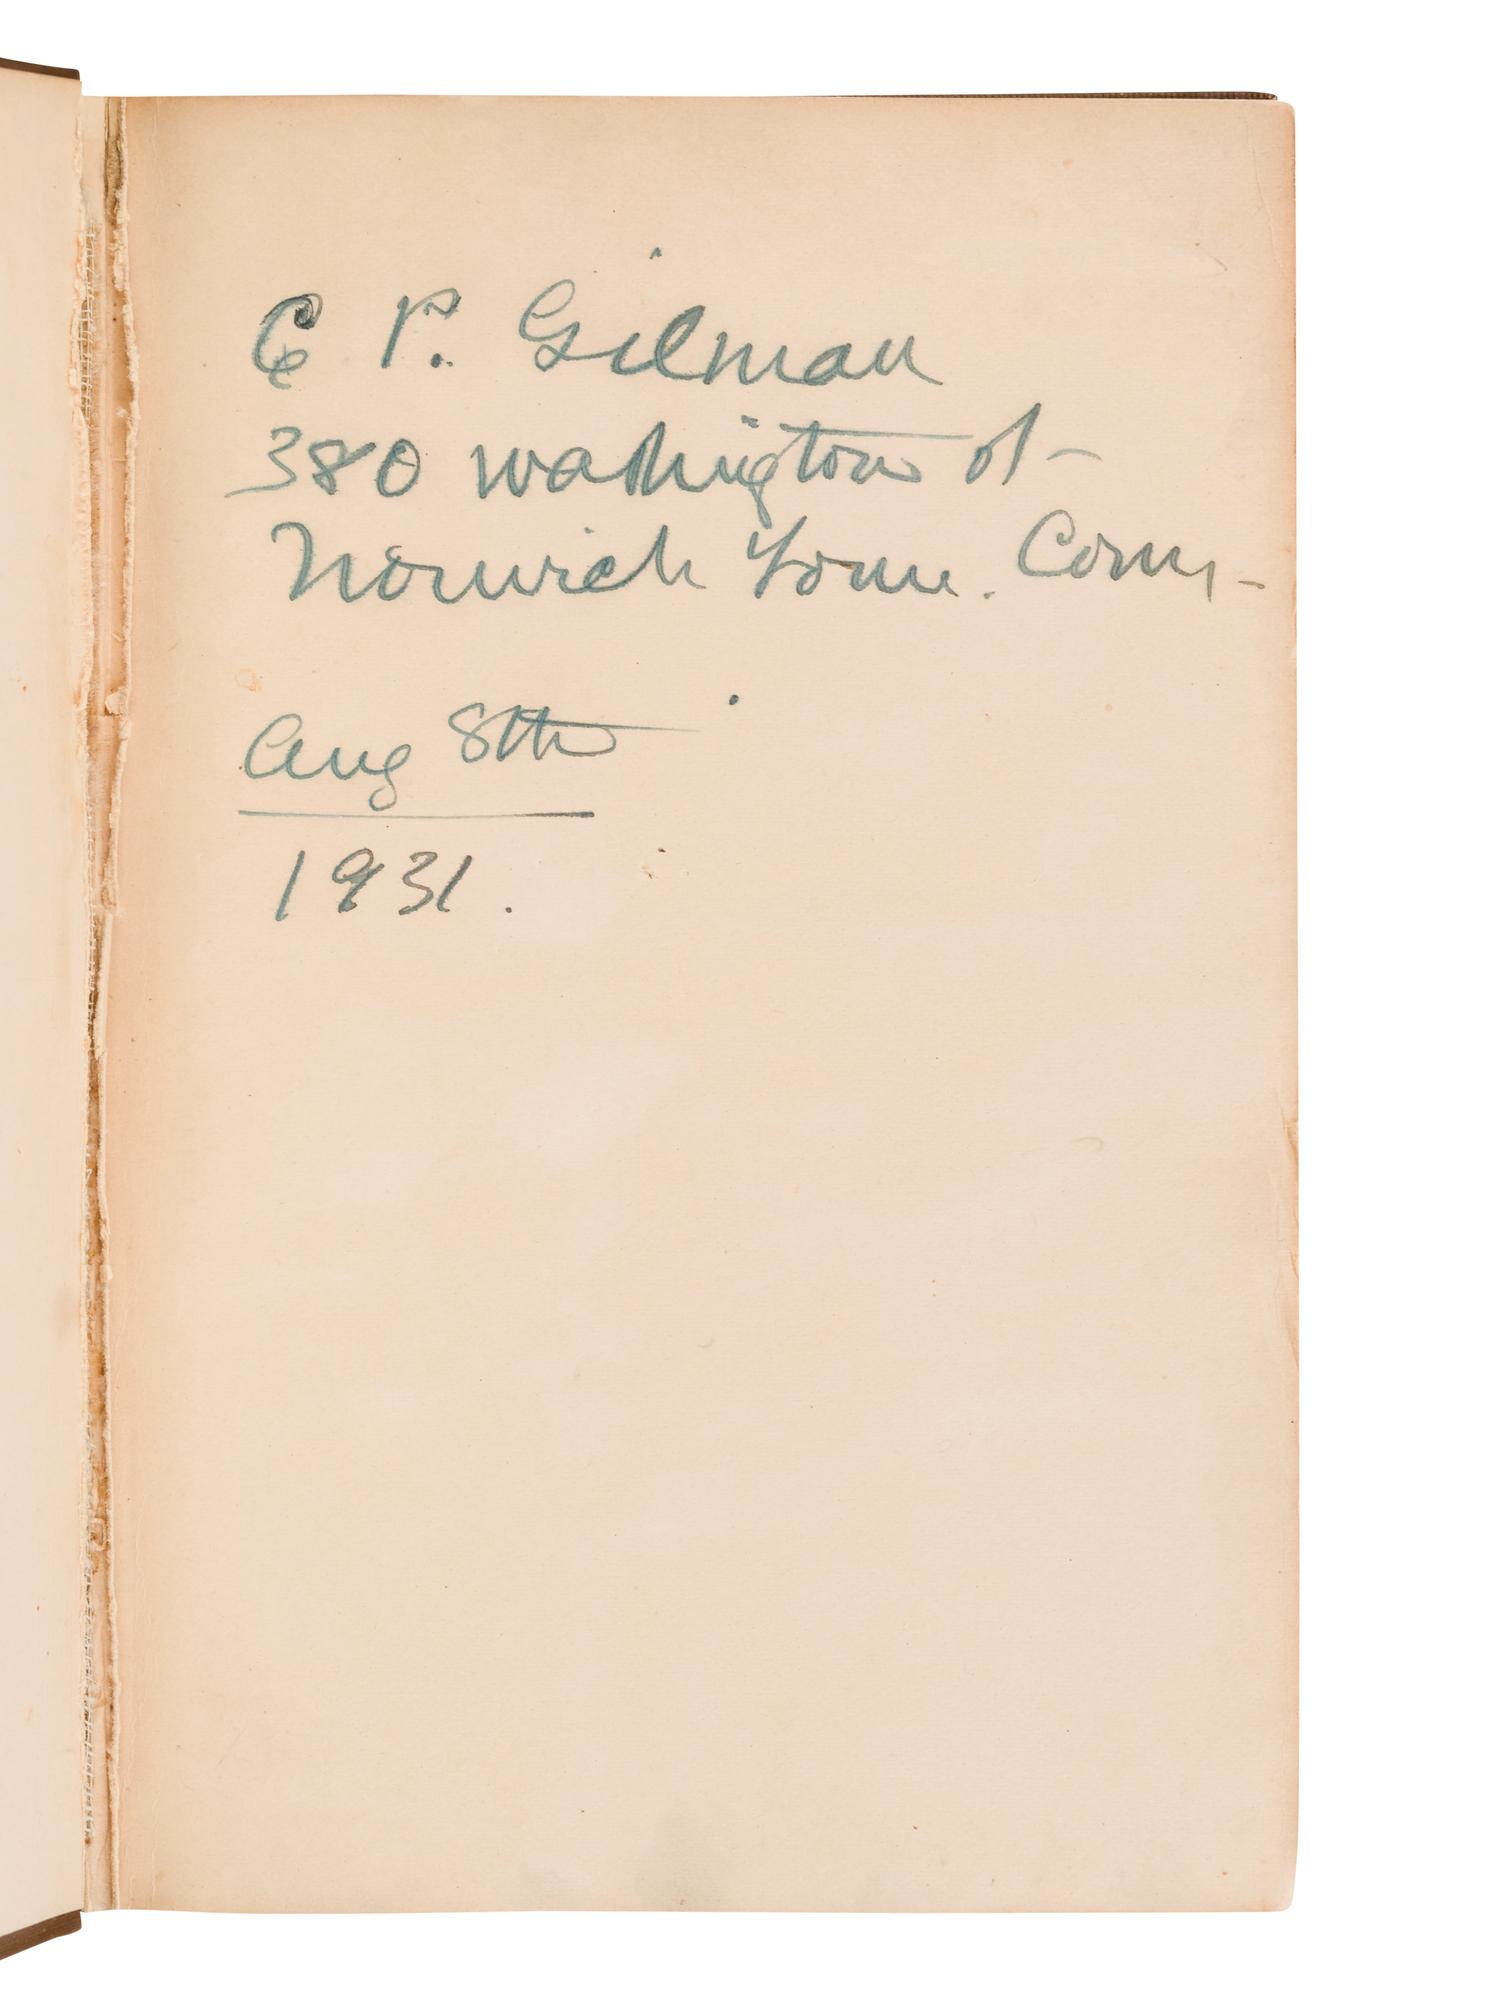 C P. Gilman
380 Washington St-
Norwich Town. Conn-
Aug 8th
1931.